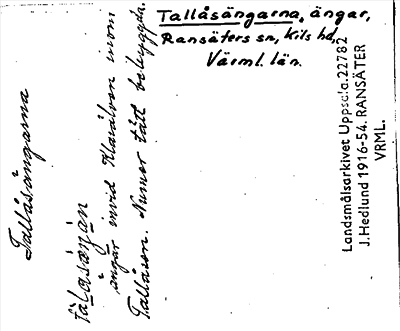 Tallåsängarna, ängar,
Ransäters sn, Kils hd,
Värml. län.
Tallåsängarna
ängar invid Klarälven inom
Tallåsen. Numer tätt bebyggda.
Landsmålsarkivet Uppsala 22782
J. Hedlund 1916-54. RANSÄTER
VRML.